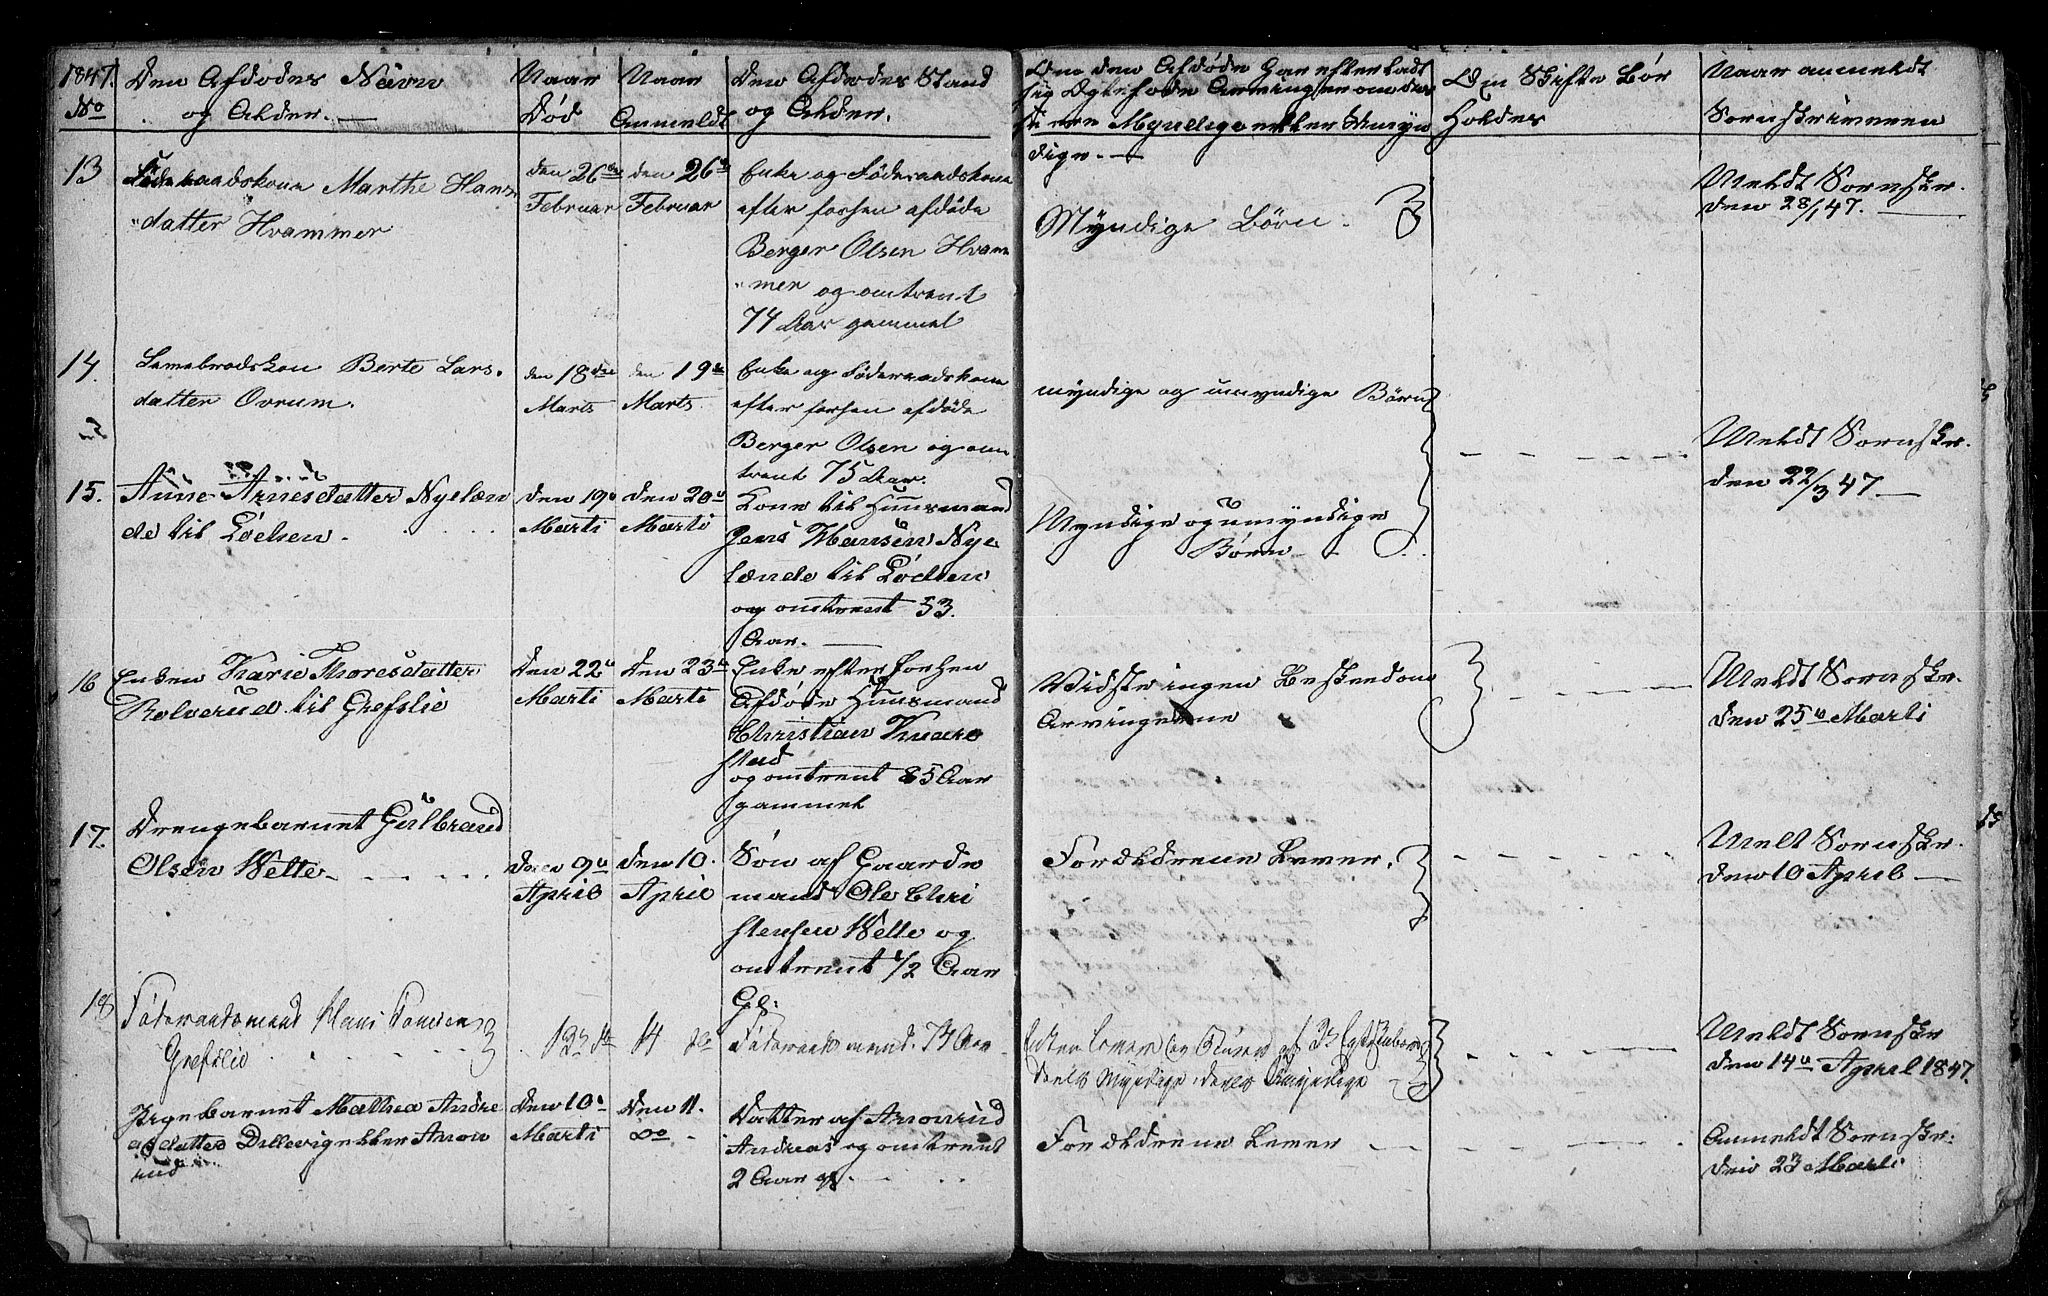 1847. Den Afdødes Navn
No og Alder.
Naar
Død
Naar
Anmeldt
Den Afdødes Stand
og Alder.
Om den Afdøde har efterladt
sig Arvinger om
ere Myndige eller Umyn
dige.
Om Skifte Bør
Holdes
Naar anmeldt
Sorenskriveren
13 Føderaadskone Marthe Hans
datter Hvammer
den 26de
Februar
den 26de
Februar
Enke og Føderaadskone
efter forhen afdøde
Berger Olsen Hvam
mer og omtrent
74 Aar gammel
Myndige Børn.
Meldt Sorenskr.
den 28/1 47.
14. Berte Lars
datter Ovrum.
den 18de
Marts
den 19de
Marts.
Enke og Føderaadskone
efter forhen afdøde
Berger Olsen og om
trent 75 Aar.
myndige og umyndige Børn
Meldt Sorenskr.
den 22/3 47.
15. Anne Arnesdatter Nyelæn
de til Lødsen.
den 19de
Marti
den 20de
Marti
Kone til Huusmand
Jens Hansen Nye
lænde til Lødsen
og omtrent 53.
Aar.
Myndige og umyndige
Børn
16 Enken Karie Thoresdatter
Rolverud til Grefslie
den 22de
Marti
den 23de
Marti
Enke efter forhen
Afdøde Huusmand
Christian Knare
stad
og omtrent 85 Aar
gammel
Vidste ingen Beskeed om
Arvingerne
Meldt Sorenskr.
den 25de Marti
17. Drengebarnet Gulbrand
Olsen Wette
den 9de
April
den 10.
April
Søn af Gaard
mand Ole Chri
stensen Wette og
omtrent 1/2 Aar
Gl.
Forældrene Lever.
Melt Sorenskr.
den 10 April
18 Føderaadsmand Hans
Grefslie
13de
14 de
Føderaadsmand. 74 Aar
Enken Lever og Børn af
deels Myndige, deels Umyndige
Meldt Sorenskr
den 14de April 1847.
Pigebarnet Mathea Andre
asdatter Dillevig eller Amon
rud
den 10de
Marti
den 11.
do
Datter af Amonrud
Andreas og omtrent
2 Aar gl.
Forældrene Lever
Anmeldt Sorenskr.
den 23 Marti